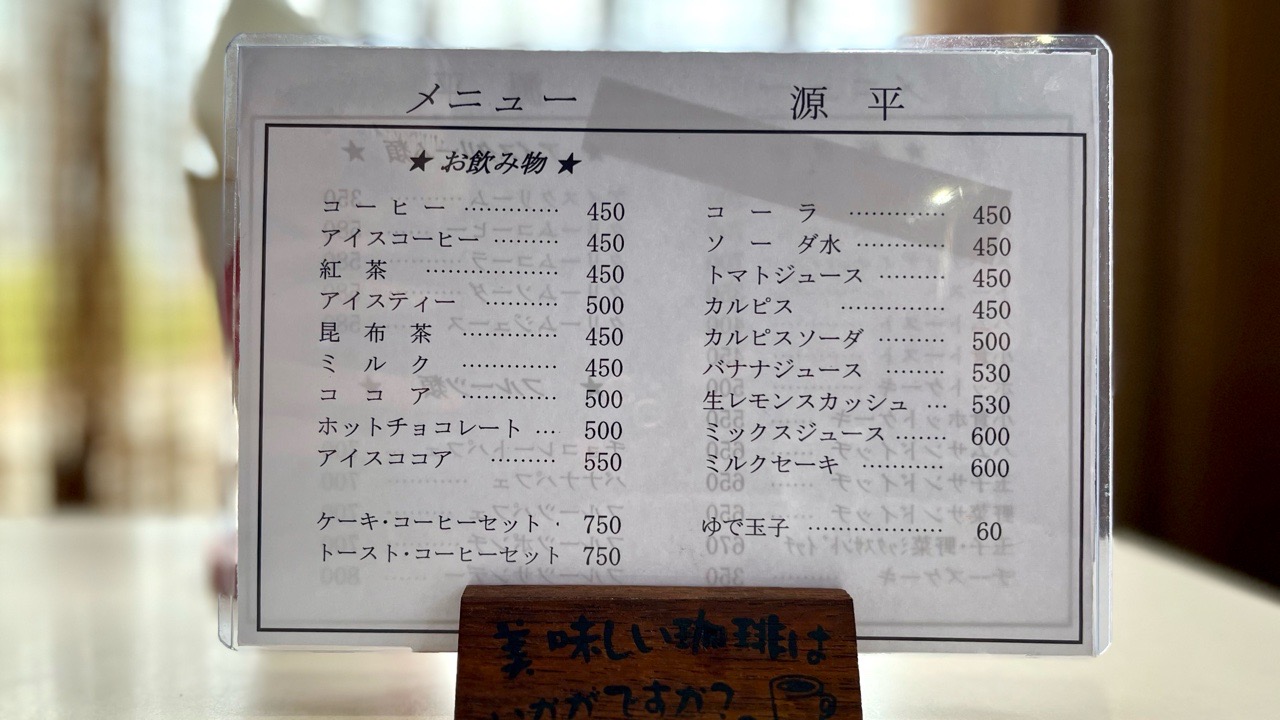 メニュー 源 平
★ お飲み物 ★
コーヒー ………… 450
アイスコーヒー ……… 450
紅 茶 ……………… 450
アイスティー ……… 500
昆 布 茶 ………… 450
ミ ル ク ………… 450
コ コ ア ………… 500
ホットチョコレート … 500
アイスココア ……… 550
ケーキ・コーヒーセット · 750
トースト・コーヒーセット 750
コ ー ラ ………… 450
ソ ー ダ水 ……… 450
トマトジュース ……… 450
カルピス ………… 450
カルピスソーダ ……… 500
バナナジュース ……… 530
生レモンスカッシュ … 530
ミックスジュース …… 600
ミルクセーキ ……… 600
ゆで玉子 ……………… 60
美味しい珈琲は
いかがですか?